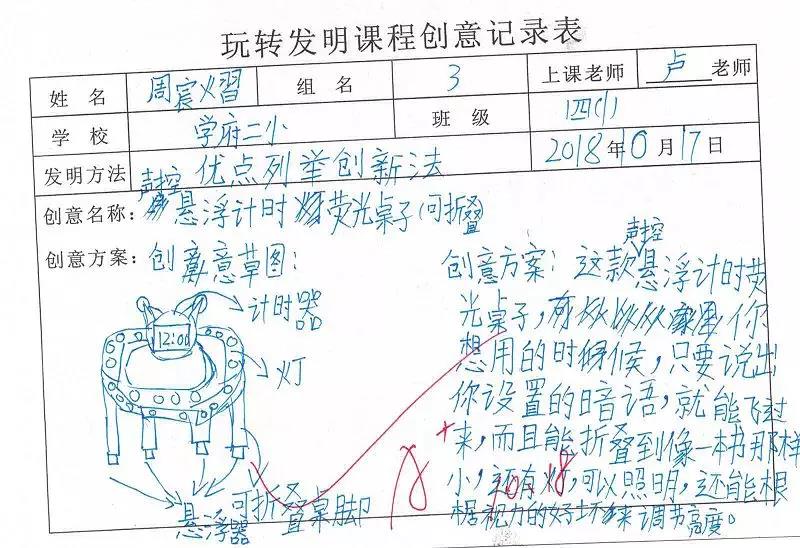 玩转发明课程创意记录表
姓 名 周宸熠 组 名 3 上课老师 卢 老师
学 校 学府二小 班 级 四(1)
发明方法 优点列举创新法 2018年10月17日
创意名称:声控悬浮计时荧光桌子(可折叠)
创意方案:创意草图: 创意方案:这款声控悬浮计时荧
计时器 光桌子,你
12:00 想用的时候,只要说出
灯 你设置的暗语,就能飞过
来,而且能折叠到像一本书那样
小,还有灯,可以照明,还能根
悬浮器 可折叠桌脚 据视力的好坏来调节高度。
10.18